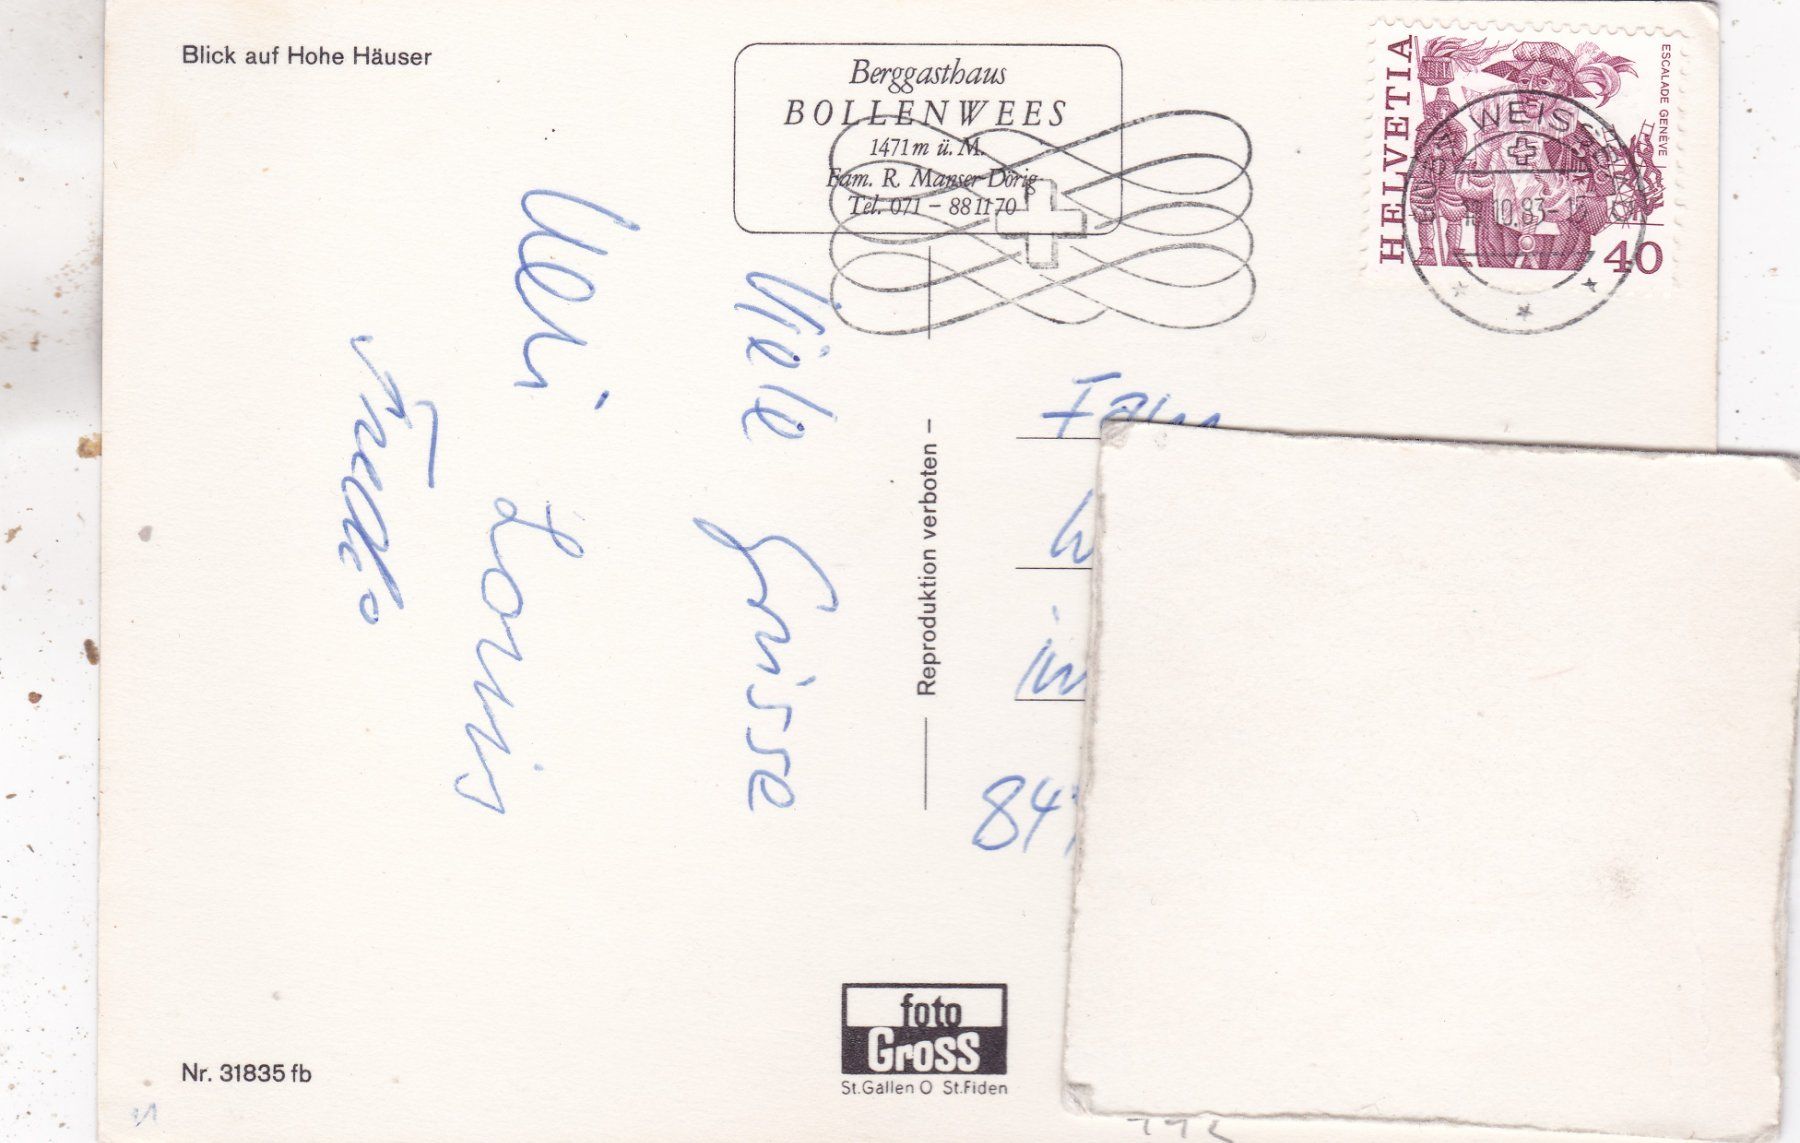 Blick auf Hohe Häuser
Berggasthaus
BOLLENWEES
1471 m ü. M.
Fam. R. Manser-Dörig
Tel. 071 – 88 11 70
HELVETIA
ESCALADE GENÈVE
40
WEISS
10.83
Viele Grüsse
Ueli Louis
Reproduktion verboten
Fam
im
foto
Gross
St.Gallen O St.Fiden
Nr. 31835 fb